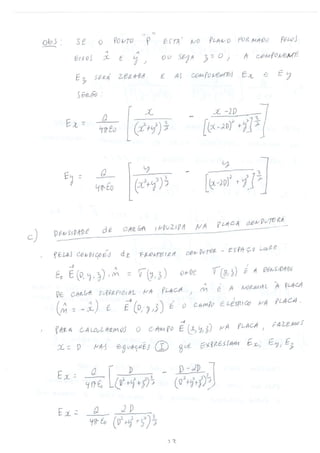 obs: SE O PONTO "P" ESTÁ NO PLANO FORMADO PELOS
EIXOS x̂ E ŷ, OU SEJA z=0, A COMPONENTE
Ez SERÁ ZERADA E AS COMPONENTES Ex E Ey
SERÃO:
Ex = Q/4πε₀ [ x/(x²+y²)^3/2 - x-2D/[(x-2D)²+y²]^3/2 ]
Ey = Q/4πε₀ [ y/(x²+y²)^3/2 - y/[(x-2D)²+y²]^3/2 ]
c) DENSIDADE de CARGA INDUZIDA NA PLACA CONDUTORA
- PELAS CONDIÇÕES de FRONTEIRA CONDUTOR - ESPAÇO LIVRE
ε₀ E⃗(D,y,z)·n̂ = σ(y,z) ONDE σ(y,z) É A DENSIDADE
DE CARGA SUPERFICIAL NA PLACA, n̂ É A NORMAL À PLACA
(n̂ = -x̂) E E⃗(D,y,z) É O CAMPO ELÉTRICO NA PLACA.
- PARA CALCULARMOS O CAMPO E⃗(D,y,z) NA PLACA, FAZEMOS
x=D NAS EQUAÇÕES I QUE EXPRESSAM Ex, Ey, Ez
Ex = Q/4πε₀ [ D/(D²+y²+z²)^3/2 - D-2D/(D²+y²+z²)^3/2 ]
Ex = Q/4πε₀ 2D/(D²+y²+z²)^3/2